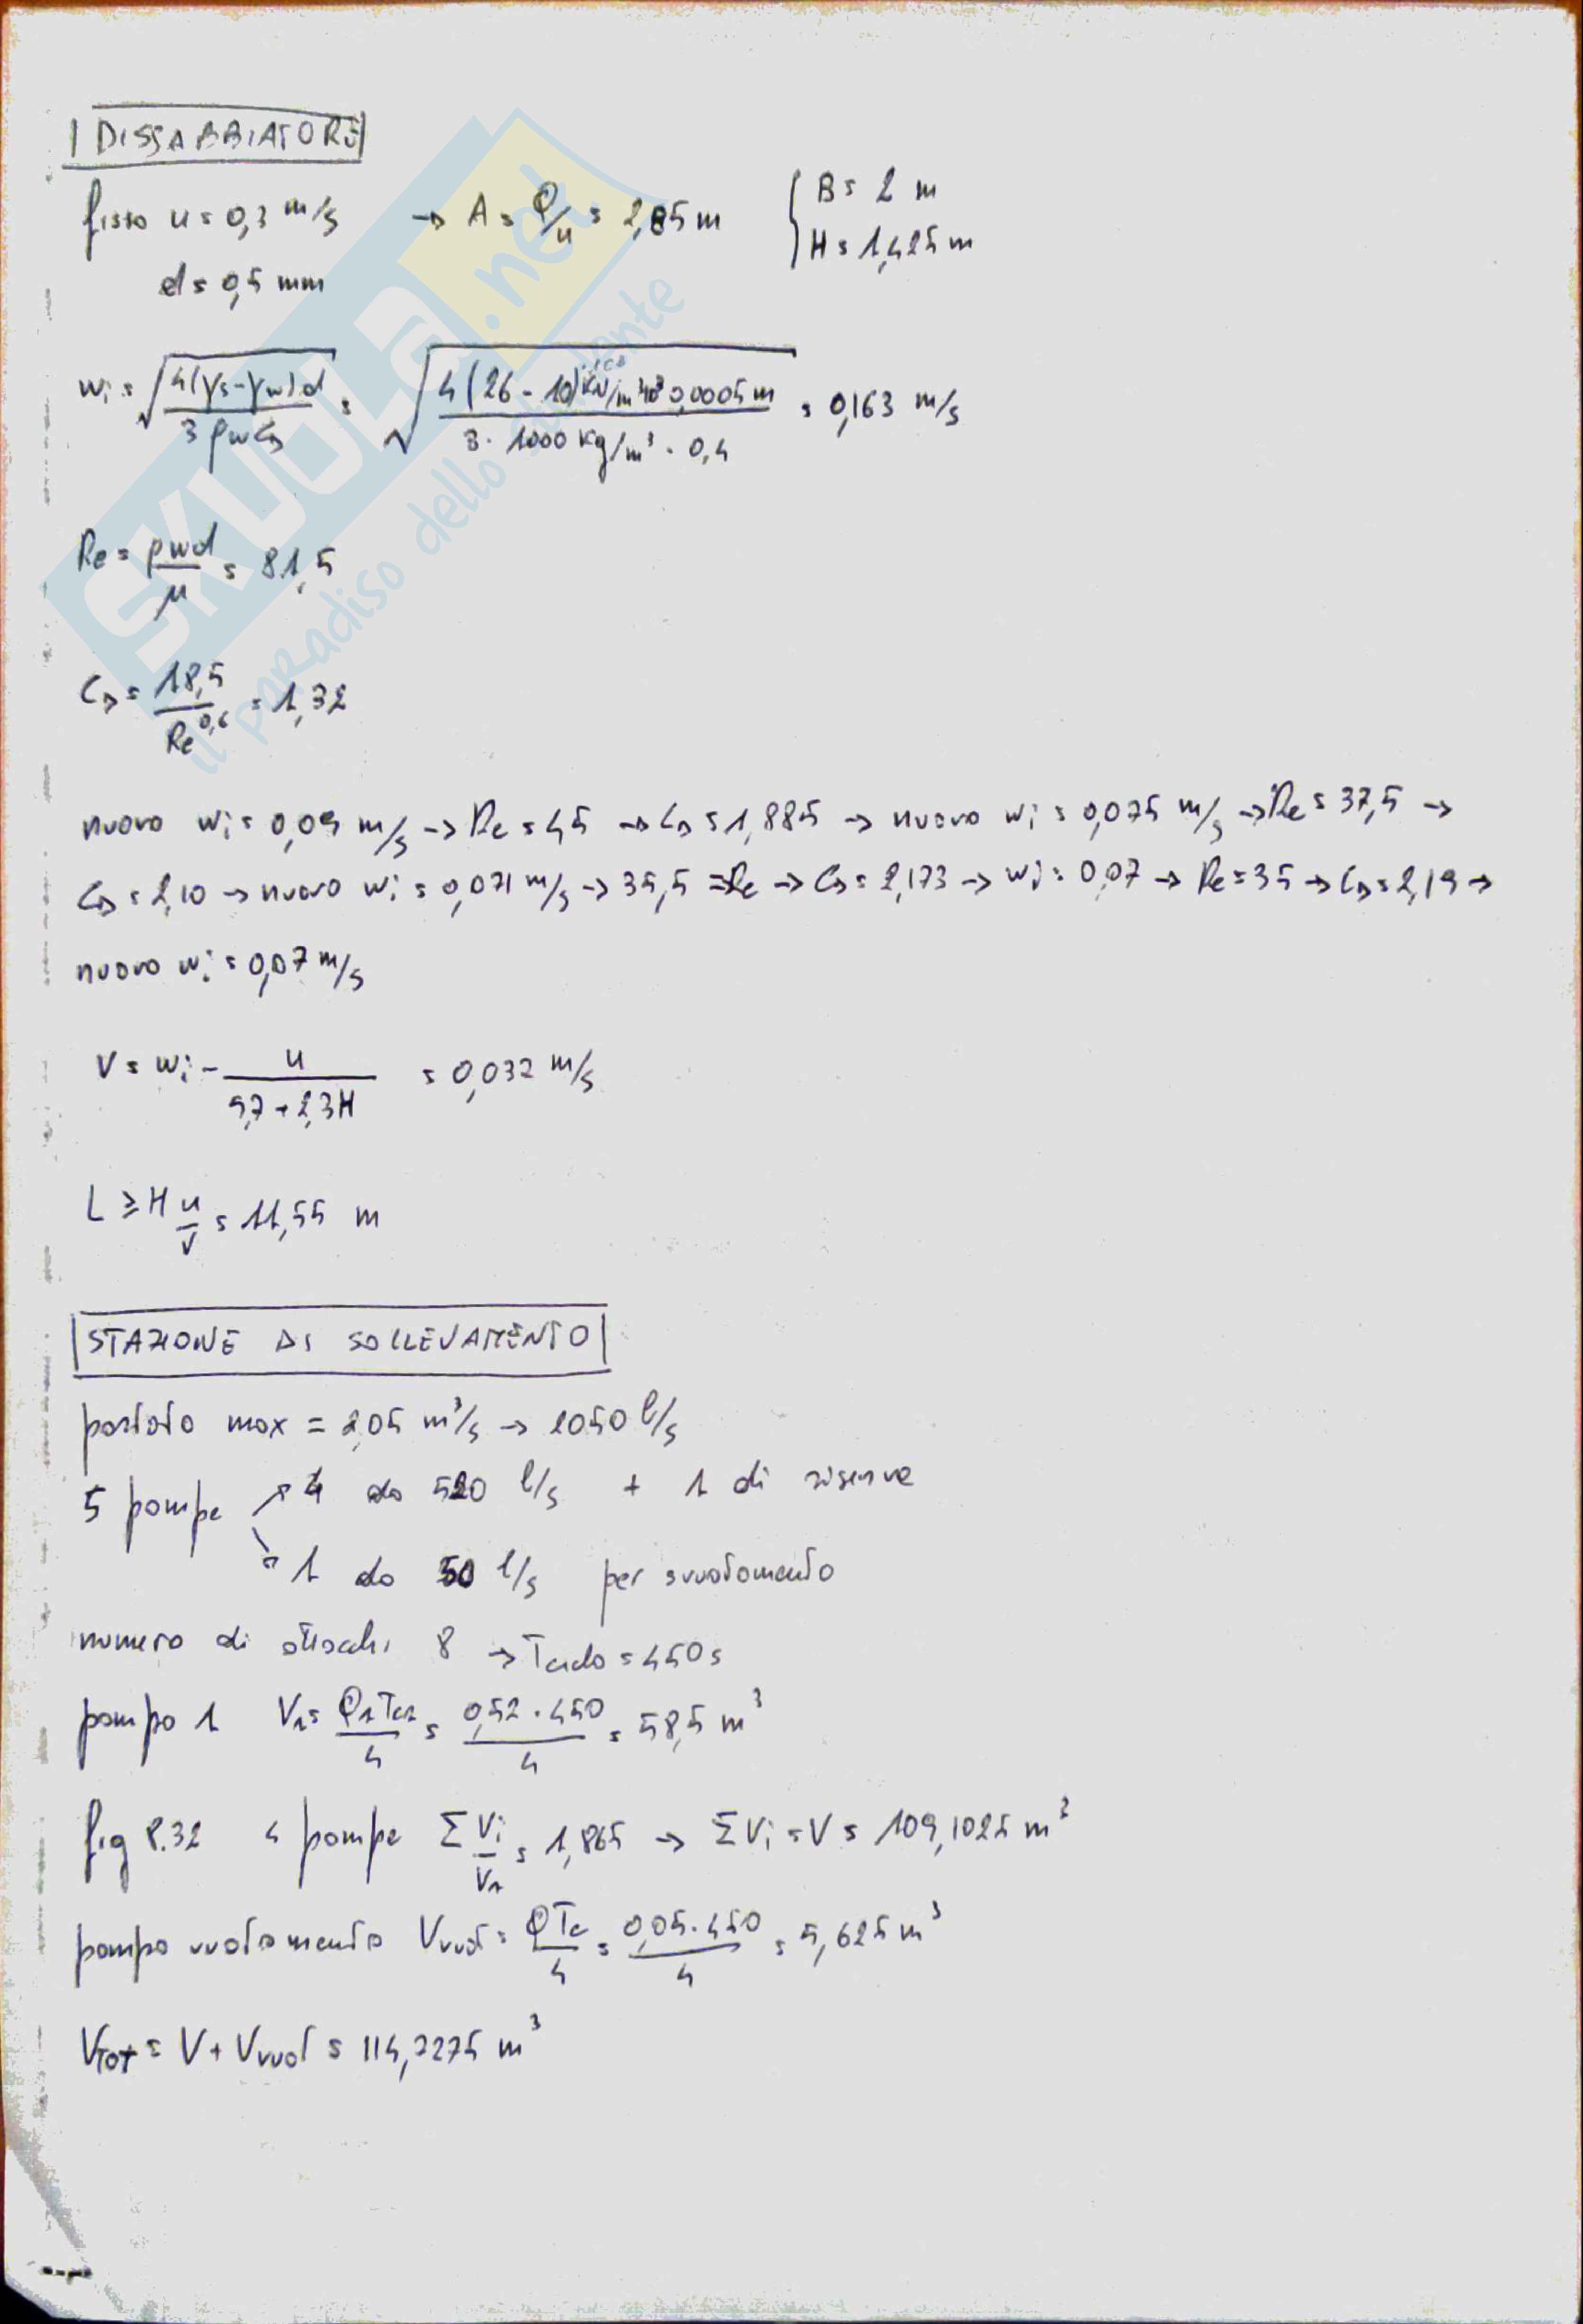 DISSABBIATORE
fisso u = 0,3 m/s → A = Q/u = 2,85 m { B = 2 m
H = 1,425 m
d = 0,5 mm
wi = √(4(γs-γw)d / 3ρwCD) = √(4(26-10)kN/m³ 10³ 0,0005 m / 3 · 1000 kg/m³ · 0,4) = 0,163 m/s
Re = ρwd/μ = 81,5
CD = 18,5/Re^0,6 = 1,32
nuovo wi = 0,09 m/s → Re = 45 → CD = 1,885 → nuovo wi = 0,075 m/s → Re = 37,5 →
CD = 2,10 → nuovo wi = 0,071 m/s → 35,5 = Re → CD = 2,173 → wi = 0,07 → Re = 35 → CD = 2,19 →
nuovo wi = 0,07 m/s
V = wi - u/(5,7 + 2,3H) = 0,037 m/s
L ≥ H u/v = 11,55 m
STAZIONE DI SOLLEVAMENTO
portata max = 2,05 m³/s → 2050 l/s
5 pompe ↗ 4 da 520 l/s + 1 di riserva
↘ 1 da 50 l/s per svuotamento
numero di attacchi 8 → Tciclo = 450 s
pompa 1 V1 = Q1Tc1/4 = 0,52 · 450/4 = 58,5 m³
fig 8.32 4 pompe Σ Vi/V1 = 1,865 → ΣVi = V = 109,1025 m³
pompa vuotamento Vvuot = QTc/4 = 0,05 · 450/4 = 5,625 m³
VTOT = V + Vvuot = 114,7275 m³
SKUOLA.net
il paradiso dello studente